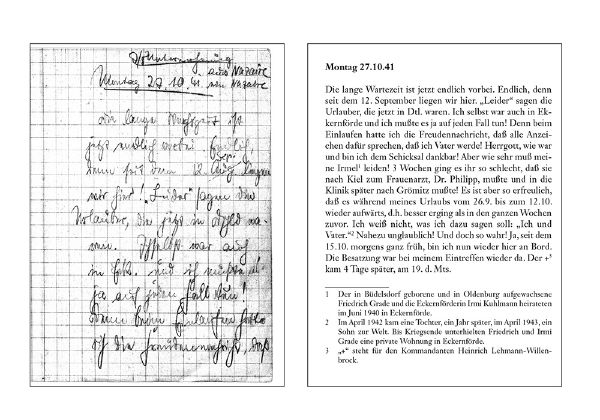 aus Nazaire
Montag 27.10.41. Nazaire
Die lange Wartezeit ist
jetzt endlich vorbei. Endlich,
Sept.
denn seit dem 12. Aug. liegen
wir hier! „Leider“ sagen die
Urlauber, die jetzt in wa-
ren. Ich selbst war auch
in und ich mußte
ja auf jeden Fall tun!
Denn beim Einlaufen hatte
ich die Freudennachricht, daß
Montag 27.10.41
Die lange Wartezeit ist jetzt endlich vorbei. Endlich, denn
seit dem 12. September liegen wir hier. „Leider“ sagen die
Urlauber, die jetzt in Dtl. waren. Ich selbst war auch in Ek-
kernförde und ich mußte es ja auf jeden Fall tun! Denn beim
Einlaufen hatte ich die Freudennachricht, daß alle Anzei-
chen dafür sprechen, daß ich Vater werde! Herrgott, wie war
und bin ich dem Schicksal dankbar! Aber wie sehr muß mei-
ne Irmel¹ leiden! 3 Wochen ging es ihr so schlecht, daß sie
nach Kiel zum Frauenarzt, Dr. Philipp, mußte und in die
Klinik später nach Grömitz mußte! Es ist aber so erfreulich,
daß es während meines Urlaubs vom 26.9. bis zum 12.10.
wieder aufwärts, d.h. besser erging als in den ganzen Wochen
zuvor. Ich weiß nicht, was ich dazu sagen soll: „Ich und
Vater.“² Nahezu unglaublich! Und doch so wahr! Ja, seit dem
15.10. morgens ganz früh, bin ich nun wieder hier an Bord.
Die Besatzung war bei meinem Eintreffen wieder da. Der „+“³
kam 4 Tage später, am 19. d. Mts.
1 Der in Büdelsdorf geborene und in Oldenburg aufgewachsene
Friedrich Grade und die Eckernförderin Irmi Kuhlmann heirateten
im Juni 1940 in Eckernförde.
2 Im April 1942 kam eine Tochter, ein Jahr später, im April 1943, ein
Sohn zur Welt. Bis Kriegsende unterhielten Friedrich und Irmi
Grade eine private Wohnung in Eckernförde.
3 „+“ steht für den Kommandanten Heinrich Lehmann-Willen-
brock.